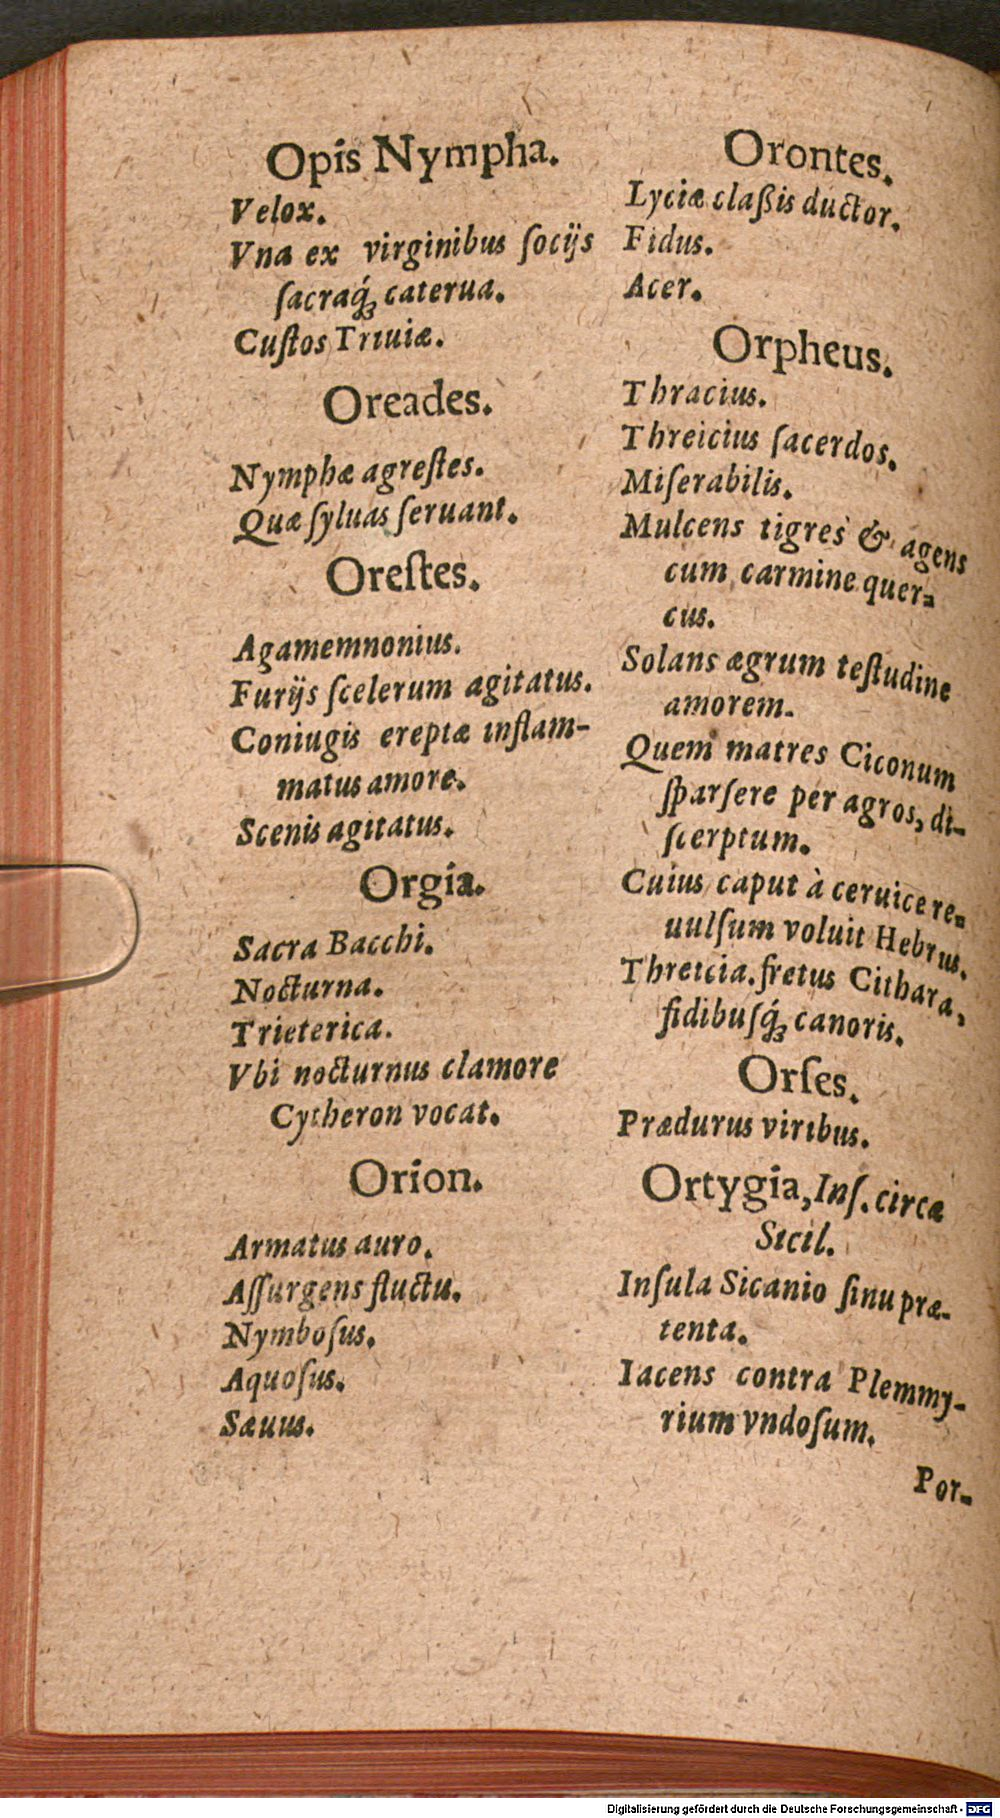 Opis Nympha.
Velox.
Vna ex virginibus ſocijs
ſacraq́; caterua.
Cuſtos Triuiæ.
Oreades.
Nymphæ agreſtes.
Quæ ſyluas ſeruant.
Oreſtes.
Agamemnonius.
Furijs ſcelerum agitatus.
Coniugis ereptæ inflam-
matus amore.
Scenis agitatus.
Orgia.
Sacra Bacchi.
Nocturna.
Trieterica.
Vbi nocturnus clamore
Cytheron vocat.
Orion.
Armatus auro.
Aſſurgens fluctu.
Nymboſus.
Aquoſus.
Sæuus.
Orontes.
Lyciæ claßis ductor.
Fidus.
Acer.
Orpheus.
Thracius.
Threicius ſacerdos.
Miſerabilis.
Mulcens tigres & agens
cum carmine quer-
cus.
Solans ægrum teſtudine
amorem.
Quem matres Ciconum
ſparſere per agros, di-
ſcerptum.
Cuius caput à ceruice re-
uulſum voluit Hebrus.
Threicia. fretus Cithara,
fidibuſq́; canoris.
Orſes.
Prædurus viribus.
Ortygia, Inſ. circa
Sicil.
Inſula Sicanio ſinu præ-
tenta.
Iacens contra Plemmy-
rium vndoſum.
Por-
Digitalisierung gefördert durch die Deutsche Forschungsgemeinschaft - DFG